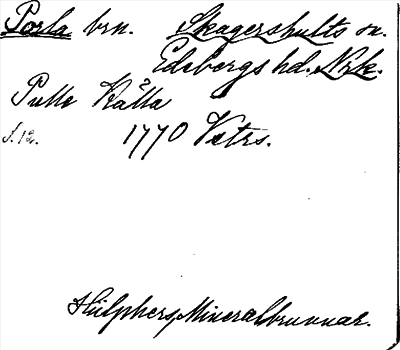 Porla brn. Skagershults sn.
Edsbergs hd. Nrk.
Pulle Källa
s. 12. 1770 Vetrs.
Hülphers, Mineralbrunnar.